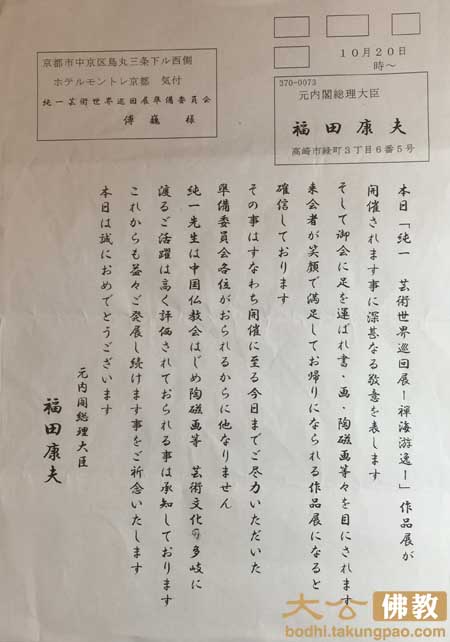 京都市中京区烏丸三条下ル西側
ホテルモントレ京都　気付
純一芸術世界巡回展準備委員会
傅巍　様
10月20日
時～
370-0073
元内閣総理大臣
福田康夫
高崎市緑町3丁目6番5号
本日「純一　芸術世界巡回展ー禅海游逸ー」作品展が
開催されます事に深甚なる敬意を表します
そして御会に足を運ばれ書・画・陶磁画等々を目にされます
来会者が笑顔で満足してお帰りになられる作品展になると
確信しております
その事はすなわち開催に至る今日までご尽力いただいた
準備委員会各位がおられるからに他なりません
純一先生は中国仏教会はじめ陶磁画等　芸術文化の多岐に
渡るご活躍は高く評価されておられる事は承知しております
これからも益々ご発展し続けます事をご祈念いたします
本日は誠におめでとうございます
元内閣総理大臣
福田康夫
大公佛教
bodhi.takungpao.com